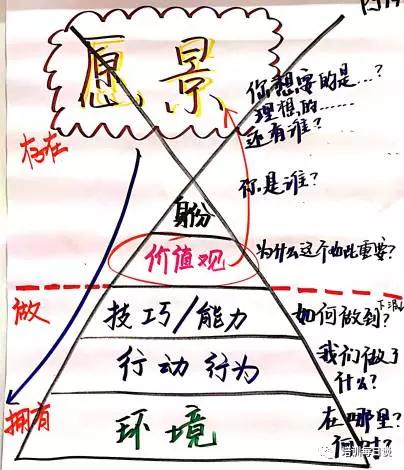 愿景
你想要的是…?
理想的……
还有谁?
存在
你是谁?
身份
价值观
为什么这个如此重要?
做
技巧/能力
如何做到?
行动行为
我们做了
什么?
拥有
环境
在哪里?
何时?
培训每日谈